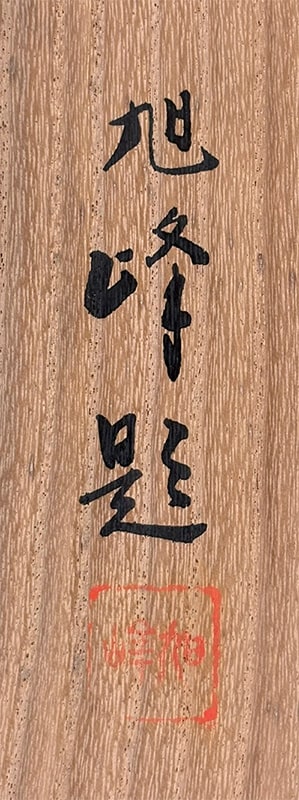 旭峰題
旭峰